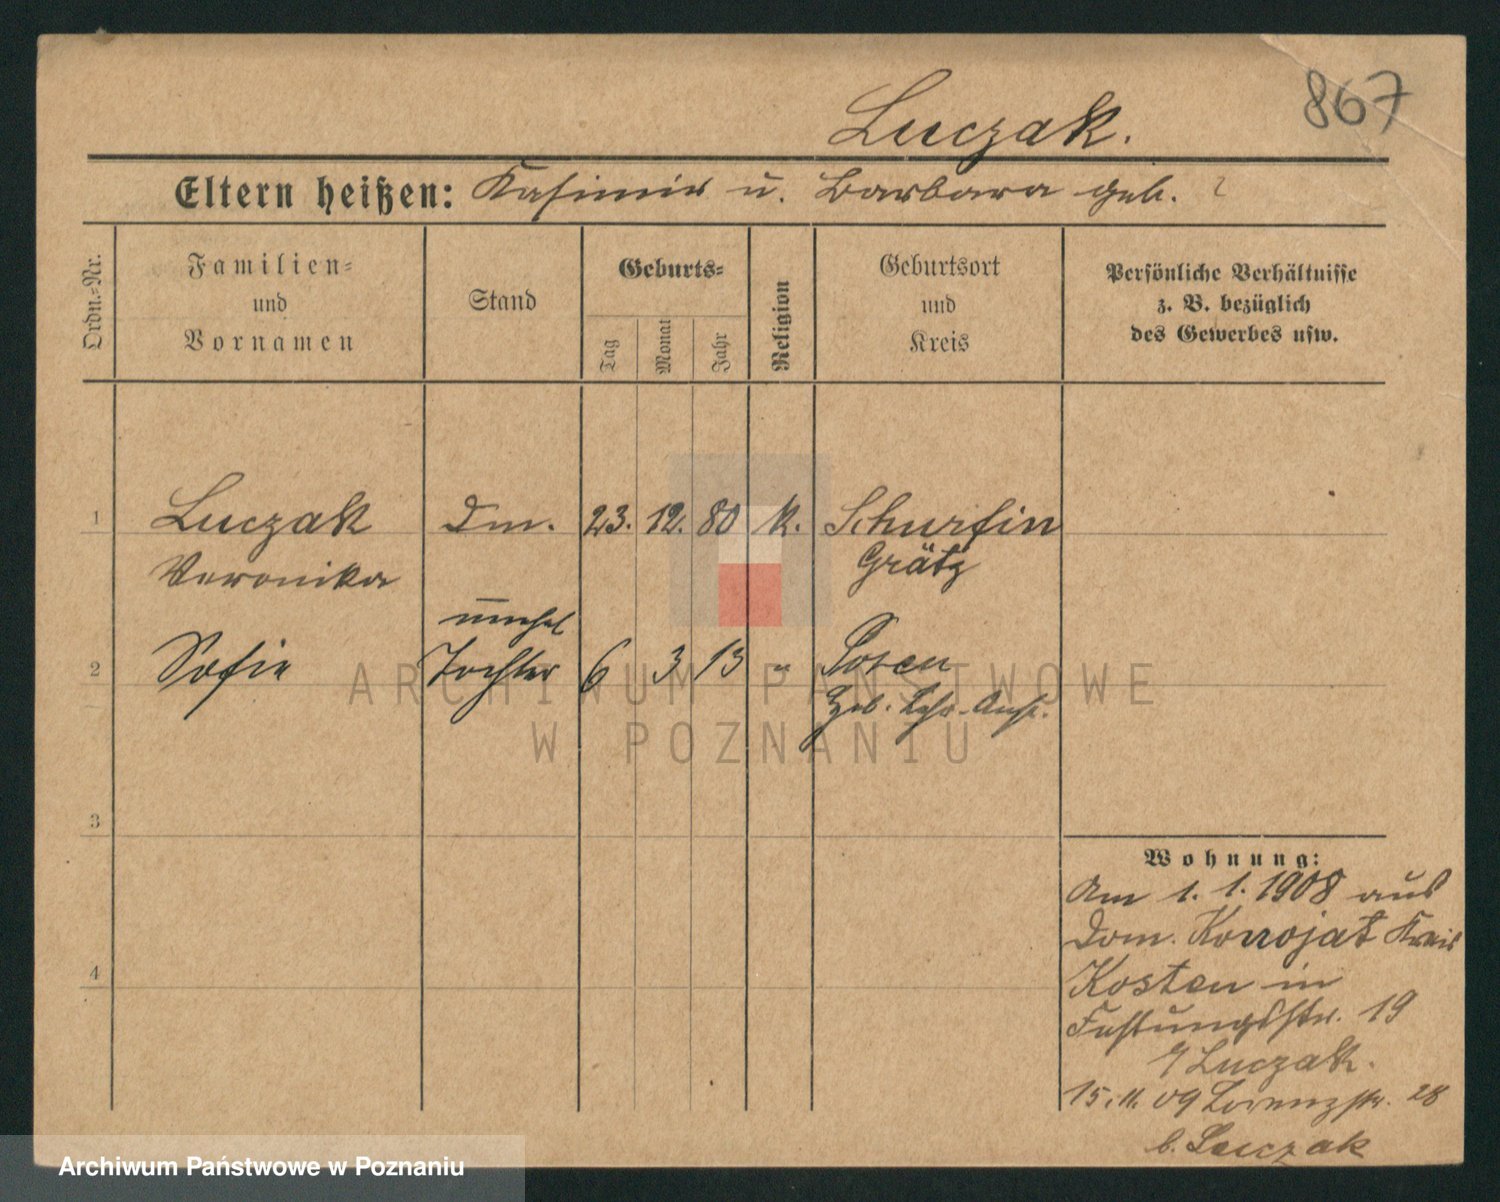 867
Luczak.
Eltern heißen: Kasimir u. Barbara geb. ?
Ordn.-Nr.
Familien-
und
Vornamen
Stand
Geburts-
Tag
Monat
Jahr
Religion
Geburtsort
und
Kreis
Persönliche Verhältnisse
z. B. bezüglich
des Gewerbes usw.
1 Luczak Dm. 23. 12. 80 k. Schurfin
Veronika Grätz
unehel
2 Sofie Tochter 6 3 13 " Posen
Heb. Lehr-Anst.
3
4
Wohnung:
Am 1. 1. 1908 aus
Dom. Konojat Kreis
Kosten in
Festungsstr. 19
Luczak.
15. 11. 09 Lorenzstr. 28
b. Luczak
ARCHIWUM PAŃSTWOWE
W POZNANIU
Archiwum Państwowe w Poznaniu